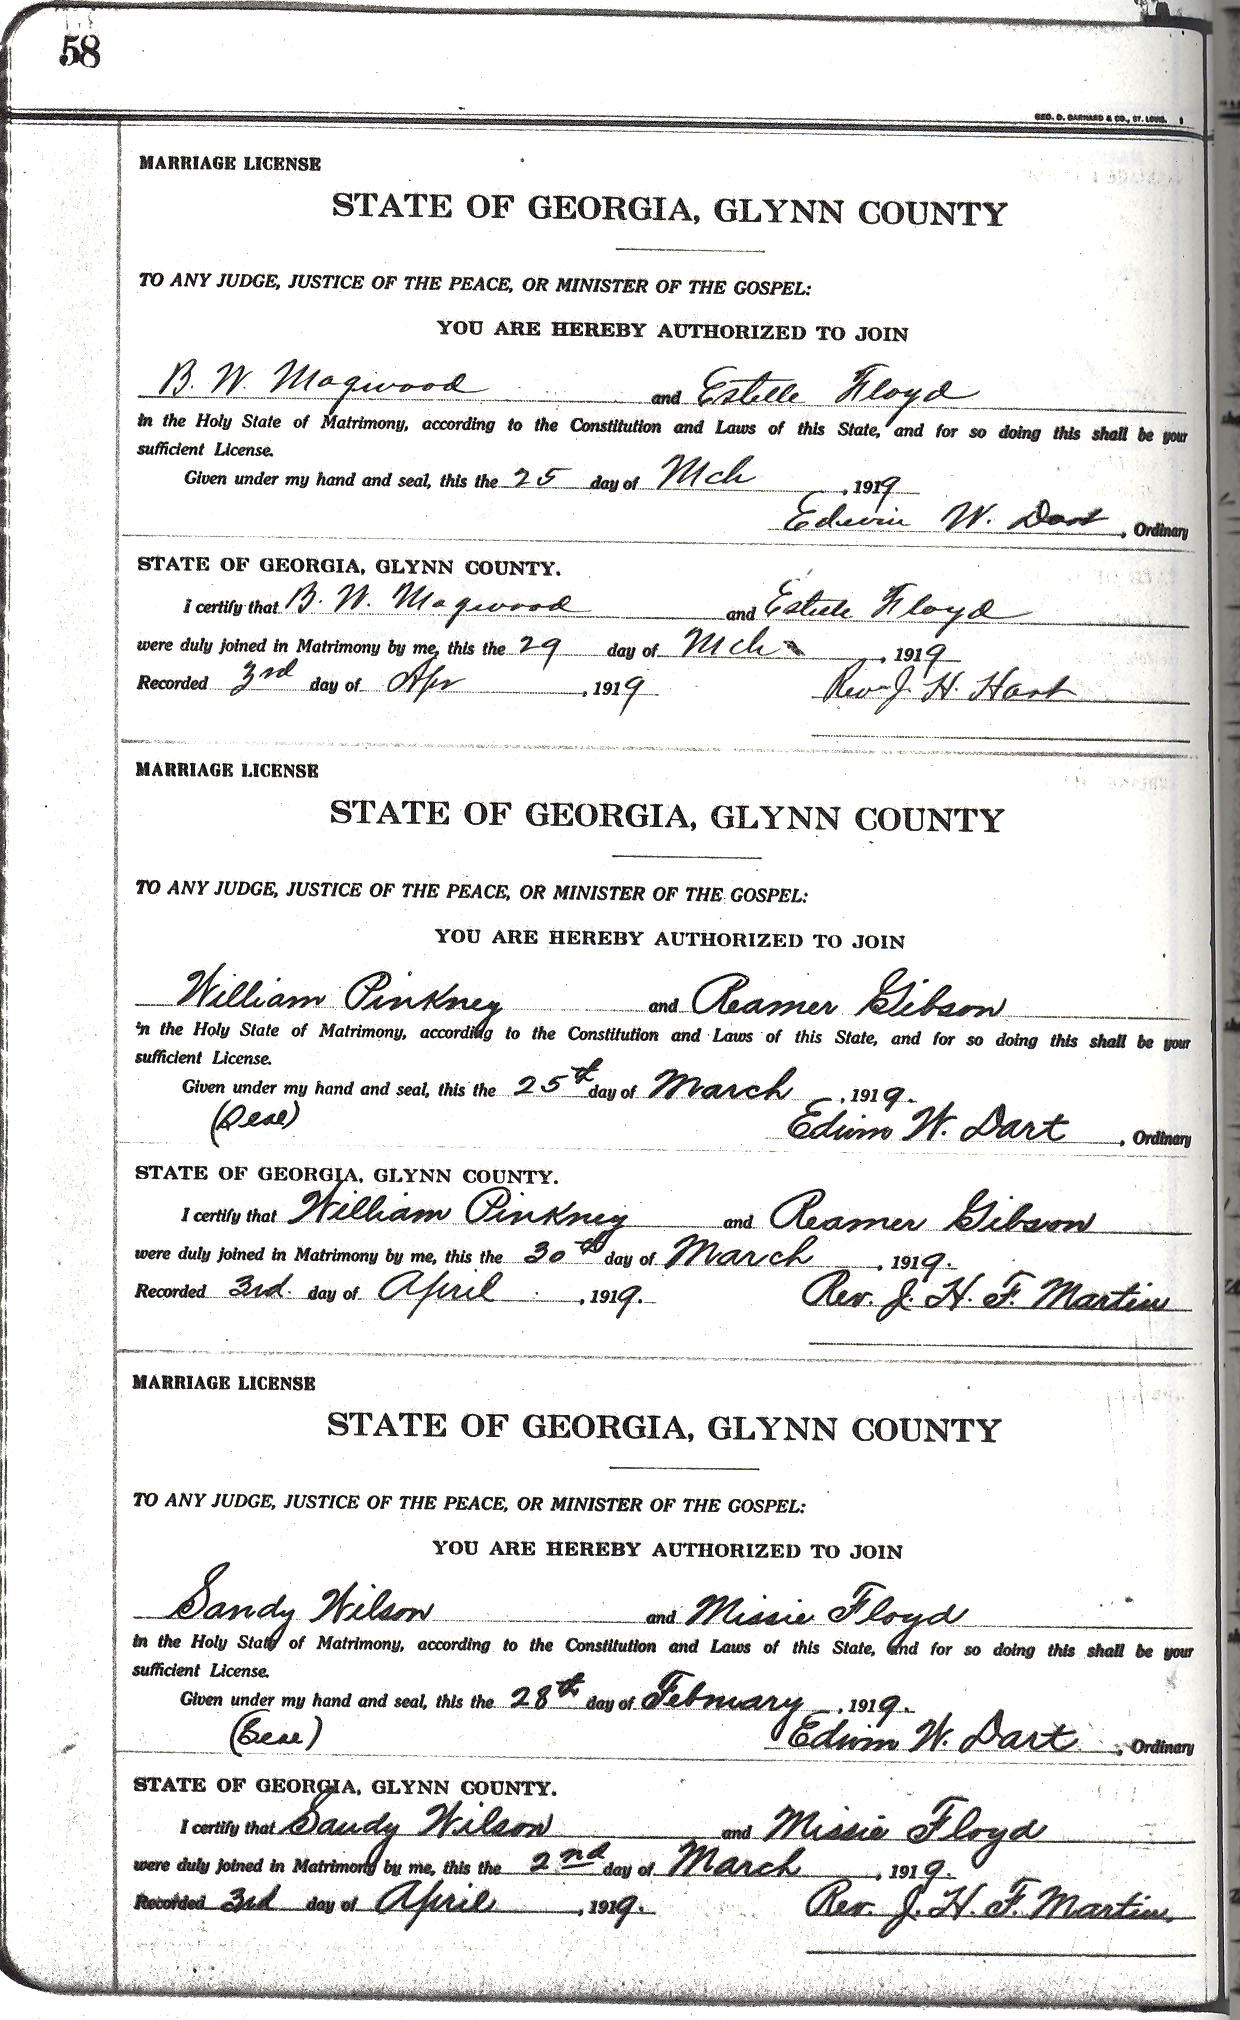 58
GEO. D. BARNARD & CO., ST. LOUIS.
MARRIAGE LICENSE
STATE OF GEORGIA, GLYNN COUNTY
TO ANY JUDGE, JUSTICE OF THE PEACE, OR MINISTER OF THE GOSPEL:
YOU ARE HEREBY AUTHORIZED TO JOIN
B. W. Magwood and Estelle Floyd
in the Holy State of Matrimony, according to the Constitution and Laws of this State, and for so doing this shall be your
sufficient License.
Given under my hand and seal, this the 25 day of Mch, 1919
Edwin W. Dart, Ordinary
STATE OF GEORGIA, GLYNN COUNTY.
I certify that B. W. Magwood and Estelle Floyd
were duly joined in Matrimony by me, this the 29 day of Mch, 1919
Recorded 3rd day of Apr, 1919 Rev J. H. Hart
MARRIAGE LICENSE
STATE OF GEORGIA, GLYNN COUNTY
TO ANY JUDGE, JUSTICE OF THE PEACE, OR MINISTER OF THE GOSPEL:
YOU ARE HEREBY AUTHORIZED TO JOIN
William Pinkney and Reamer Gibson
in the Holy State of Matrimony, according to the Constitution and Laws of this State, and for so doing this shall be your
sufficient License.
Given under my hand and seal, this the 25th day of March, 1919.
(Seal) Edwin W. Dart, Ordinary
STATE OF GEORGIA, GLYNN COUNTY.
I certify that William Pinkney and Reamer Gibson
were duly joined in Matrimony by me, this the 30th day of March, 1919.
Recorded 3rd. day of April, 1919. Rev. J. H. F. Martin
MARRIAGE LICENSE
STATE OF GEORGIA, GLYNN COUNTY
TO ANY JUDGE, JUSTICE OF THE PEACE, OR MINISTER OF THE GOSPEL:
YOU ARE HEREBY AUTHORIZED TO JOIN
Sandy Wilson and Missie Floyd
in the Holy State of Matrimony, according to the Constitution and Laws of this State, and for so doing this shall be your
sufficient License.
Given under my hand and seal, this the 28th day of February, 1919.
(Seal) Edwin W. Dart, Ordinary
STATE OF GEORGIA, GLYNN COUNTY.
I certify that Sandy Wilson and Missie Floyd
were duly joined in Matrimony by me, this the 2nd day of March, 1919.
Recorded 3rd day of April, 1919. Rev. J. H. F. Martin.